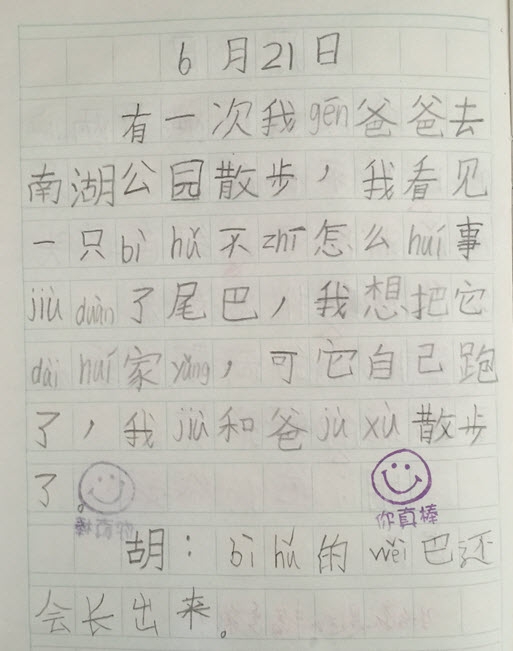 6月21日
有一次我gēn爸爸去
南湖公园散步，我看见
一只bì hǔ不zhī怎么huí事
jiù duàn了尾巴，我想把它
dài huí家yǎng，可它自己跑
了，我jiù和爸jù xù散步
了。
你真棒
胡：bì hǔ的wěi巴还
会长出来。